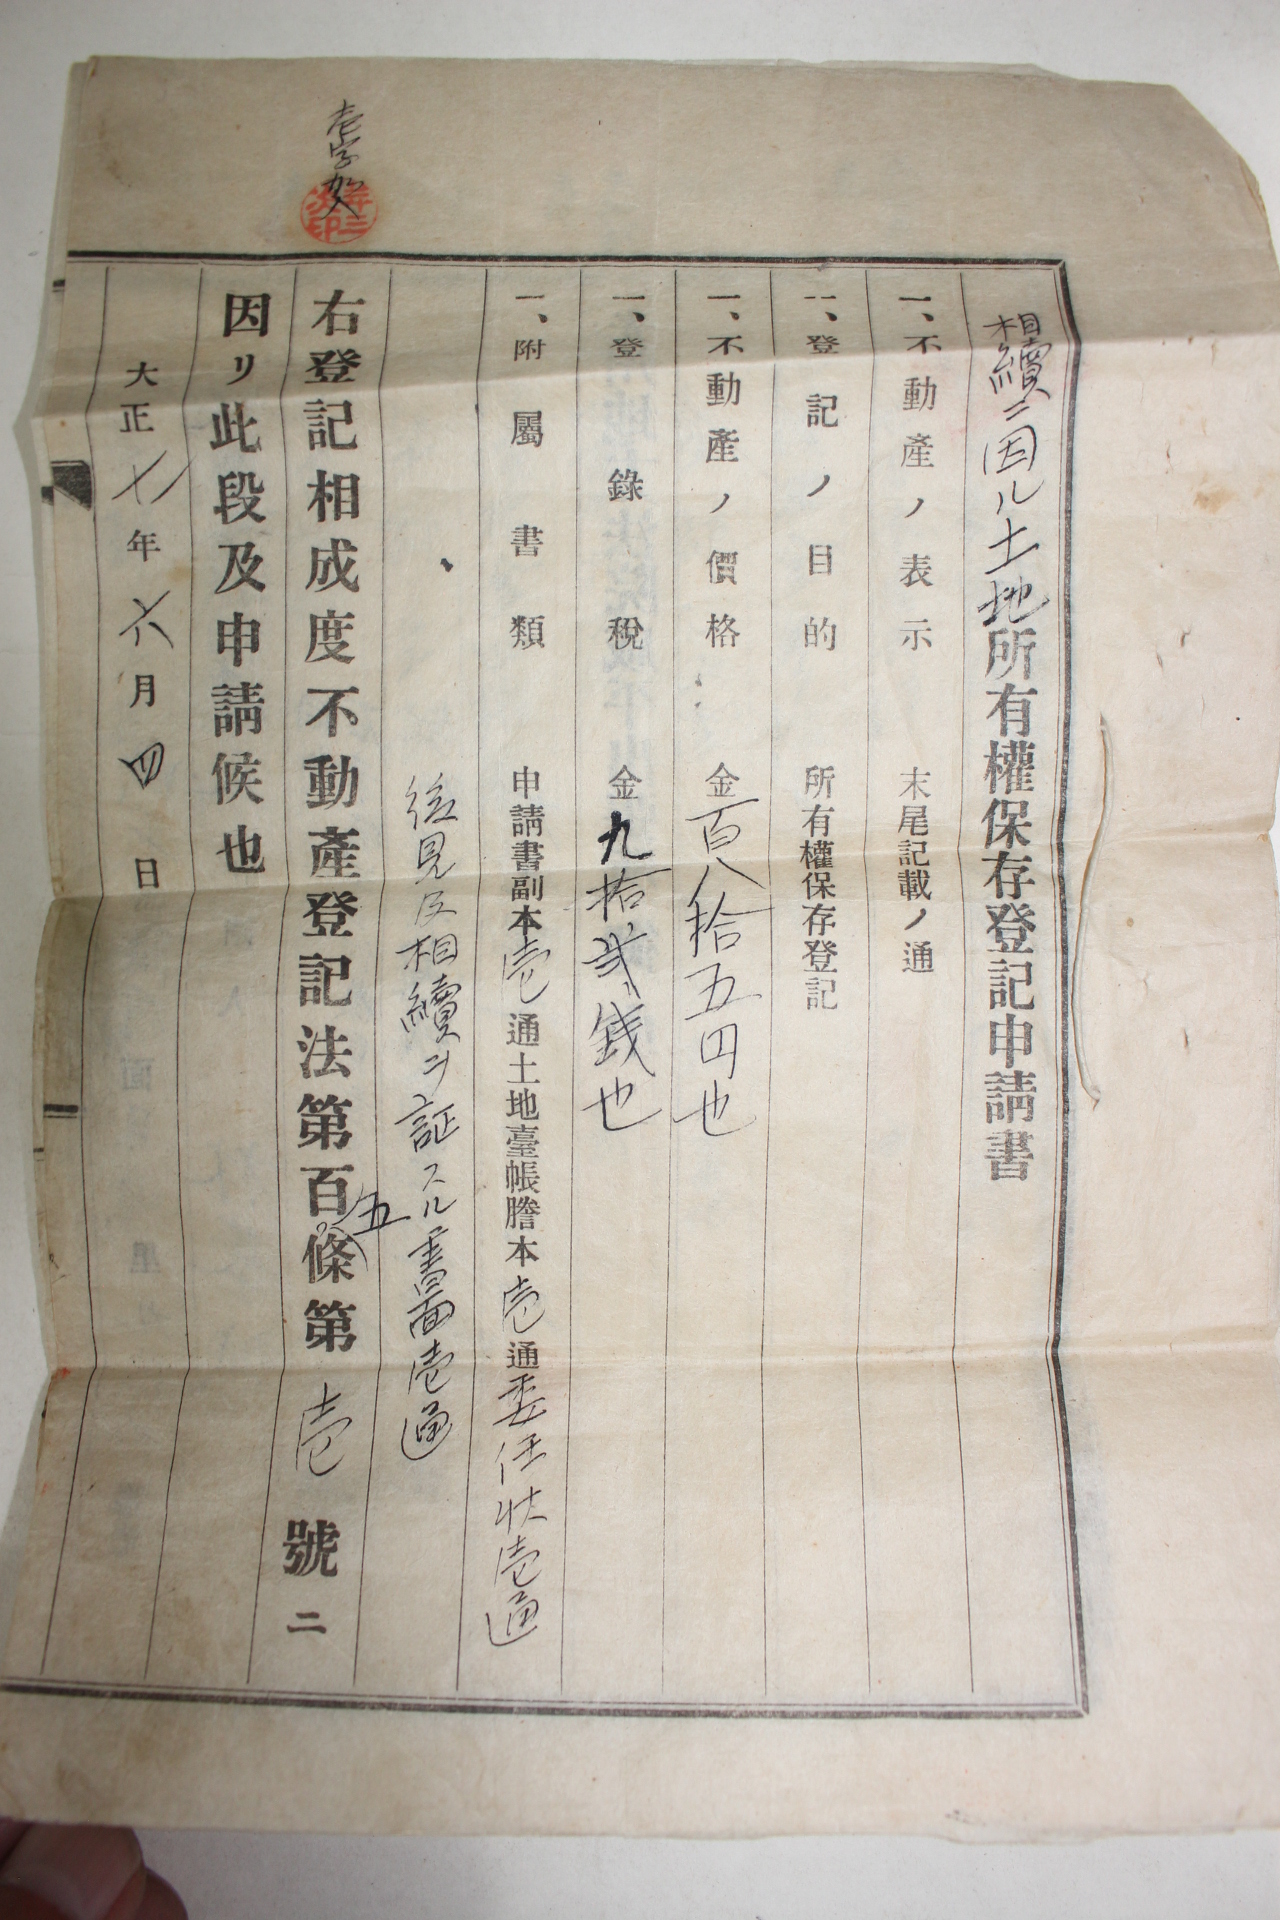 相續ニ因ル土地所有權保存登記申請書
一、不動產ノ表示 末尾記載ノ通
一、登記ノ目的 所有權保存登記
一、不動產ノ價格 金百八拾五円也
一、登錄稅 金九拾弐錢也
一、附屬書類 申請書副本壱通土地臺帳謄本壱通委任狀壱通
後見及相續ヲ証スル書面壱通
壱字加入
右登記相成度不動產登記法第百五條第壱號二
因リ此段及申請候也
大正八年六月四日